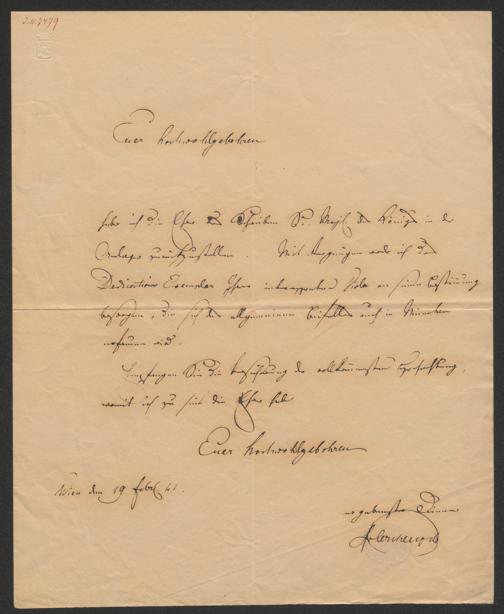 I.N. 7479
Euer Hochwohlgebohren
habe ich die Ehre das Schreiben Sr. Majt. des Königs in der
Anlage zurückzustellen. Mit Vergnügen werde ich das
Dedications Exemplar Ihres interessanten Werkes an seine Bestimmung
besorgen, die sich des allgemeinen Beifalles auch in München
erfreuen wird.
Empfangen Sie die Versicherung der vollkommensten Hochachtung,
womit ich zu sein die Ehre habe
Euer Hochwohlgebohren
Wien den 19 Febr. 41.
ergebenster Diener